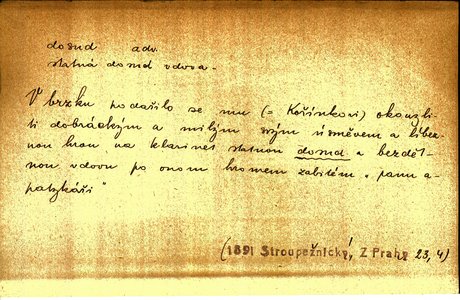 dosud adv.
statná dosud vdova.
V brzku podařilo se mu (= Kořínkovi) okouzli-
ti dobráckým a milým svým úsměvem a libez-
nou hrou na klarinet statnou dosud a bezdět-
nou vdovu po onom hromem zabitém „panu a-
patykáři"
(1891 Stroupežnický, Z Prahy 23,4)